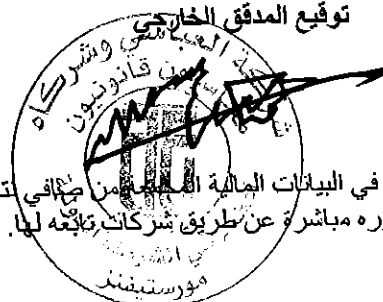 توقيع المدقق الخارجي
شركة العباسي وشركاه
محاسبون قانونيون
في البيانات المالية المجمعه من صافي
وره مباشرة عن طريق شركات تابعه لها.
مورستيفنز